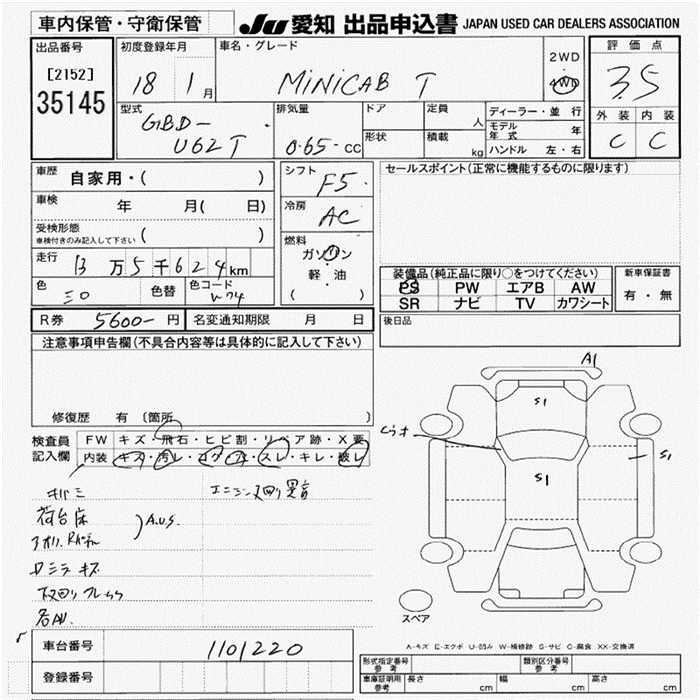 車内保管・守衛保管
JU 愛知 出品申込書 JAPAN USED CAR DEALERS ASSOCIATION
出品番号
[2152]
35145
初度登録年月
18 1 月
車名・グレード
MINICAB T
2WD
・
4WD
評価点
3.5
外装 内装
C C
型式
GBD-
U62T
排気量
0.65 cc
ドア
形状
定員
人
積載
kg
ディーラー・並行
モデル年式 年
ハンドル 左・右
車歴
自家用・( )
車検 年 月( 日)
受検形態
車検付きのみ記入して下さい ( )
走行 13万5千624km
色
色替
色コード
シフト
F5
冷房
AC
燃料
ガソリン
軽・油
( )
セールスポイント(正常に機能するものに限ります)
装備品(純正品に限り○をつけてください)
PS PW エアB AW
SR ナビ TV カワシート
新車保証書
有・無
R券 5600- 円 名変通知期限 月 日
後日品
注意事項申告欄(不具合内容等は具体的に記入して下さい)
修復歴 有 〔箇所 〕
検査員
記入欄
FW キズ・飛石・ヒビ割・リペア跡・X要
内装 キズ・汚レ・コゲ・穴・スレ・キレ・破レ
荷台床
A.U.S.
キズ
エンジン下回り異音
下回り
A1
S1
S1
S1
スペア
A-キズ E-エクボ U-凹み W-補修跡 S-サビ C-腐食 XX-交換済
車台番号 1101220
登録番号
形式指定番号
参考
類別区分番号
参考
車庫証明用
参考
長さ cm 幅 cm 高さ cm